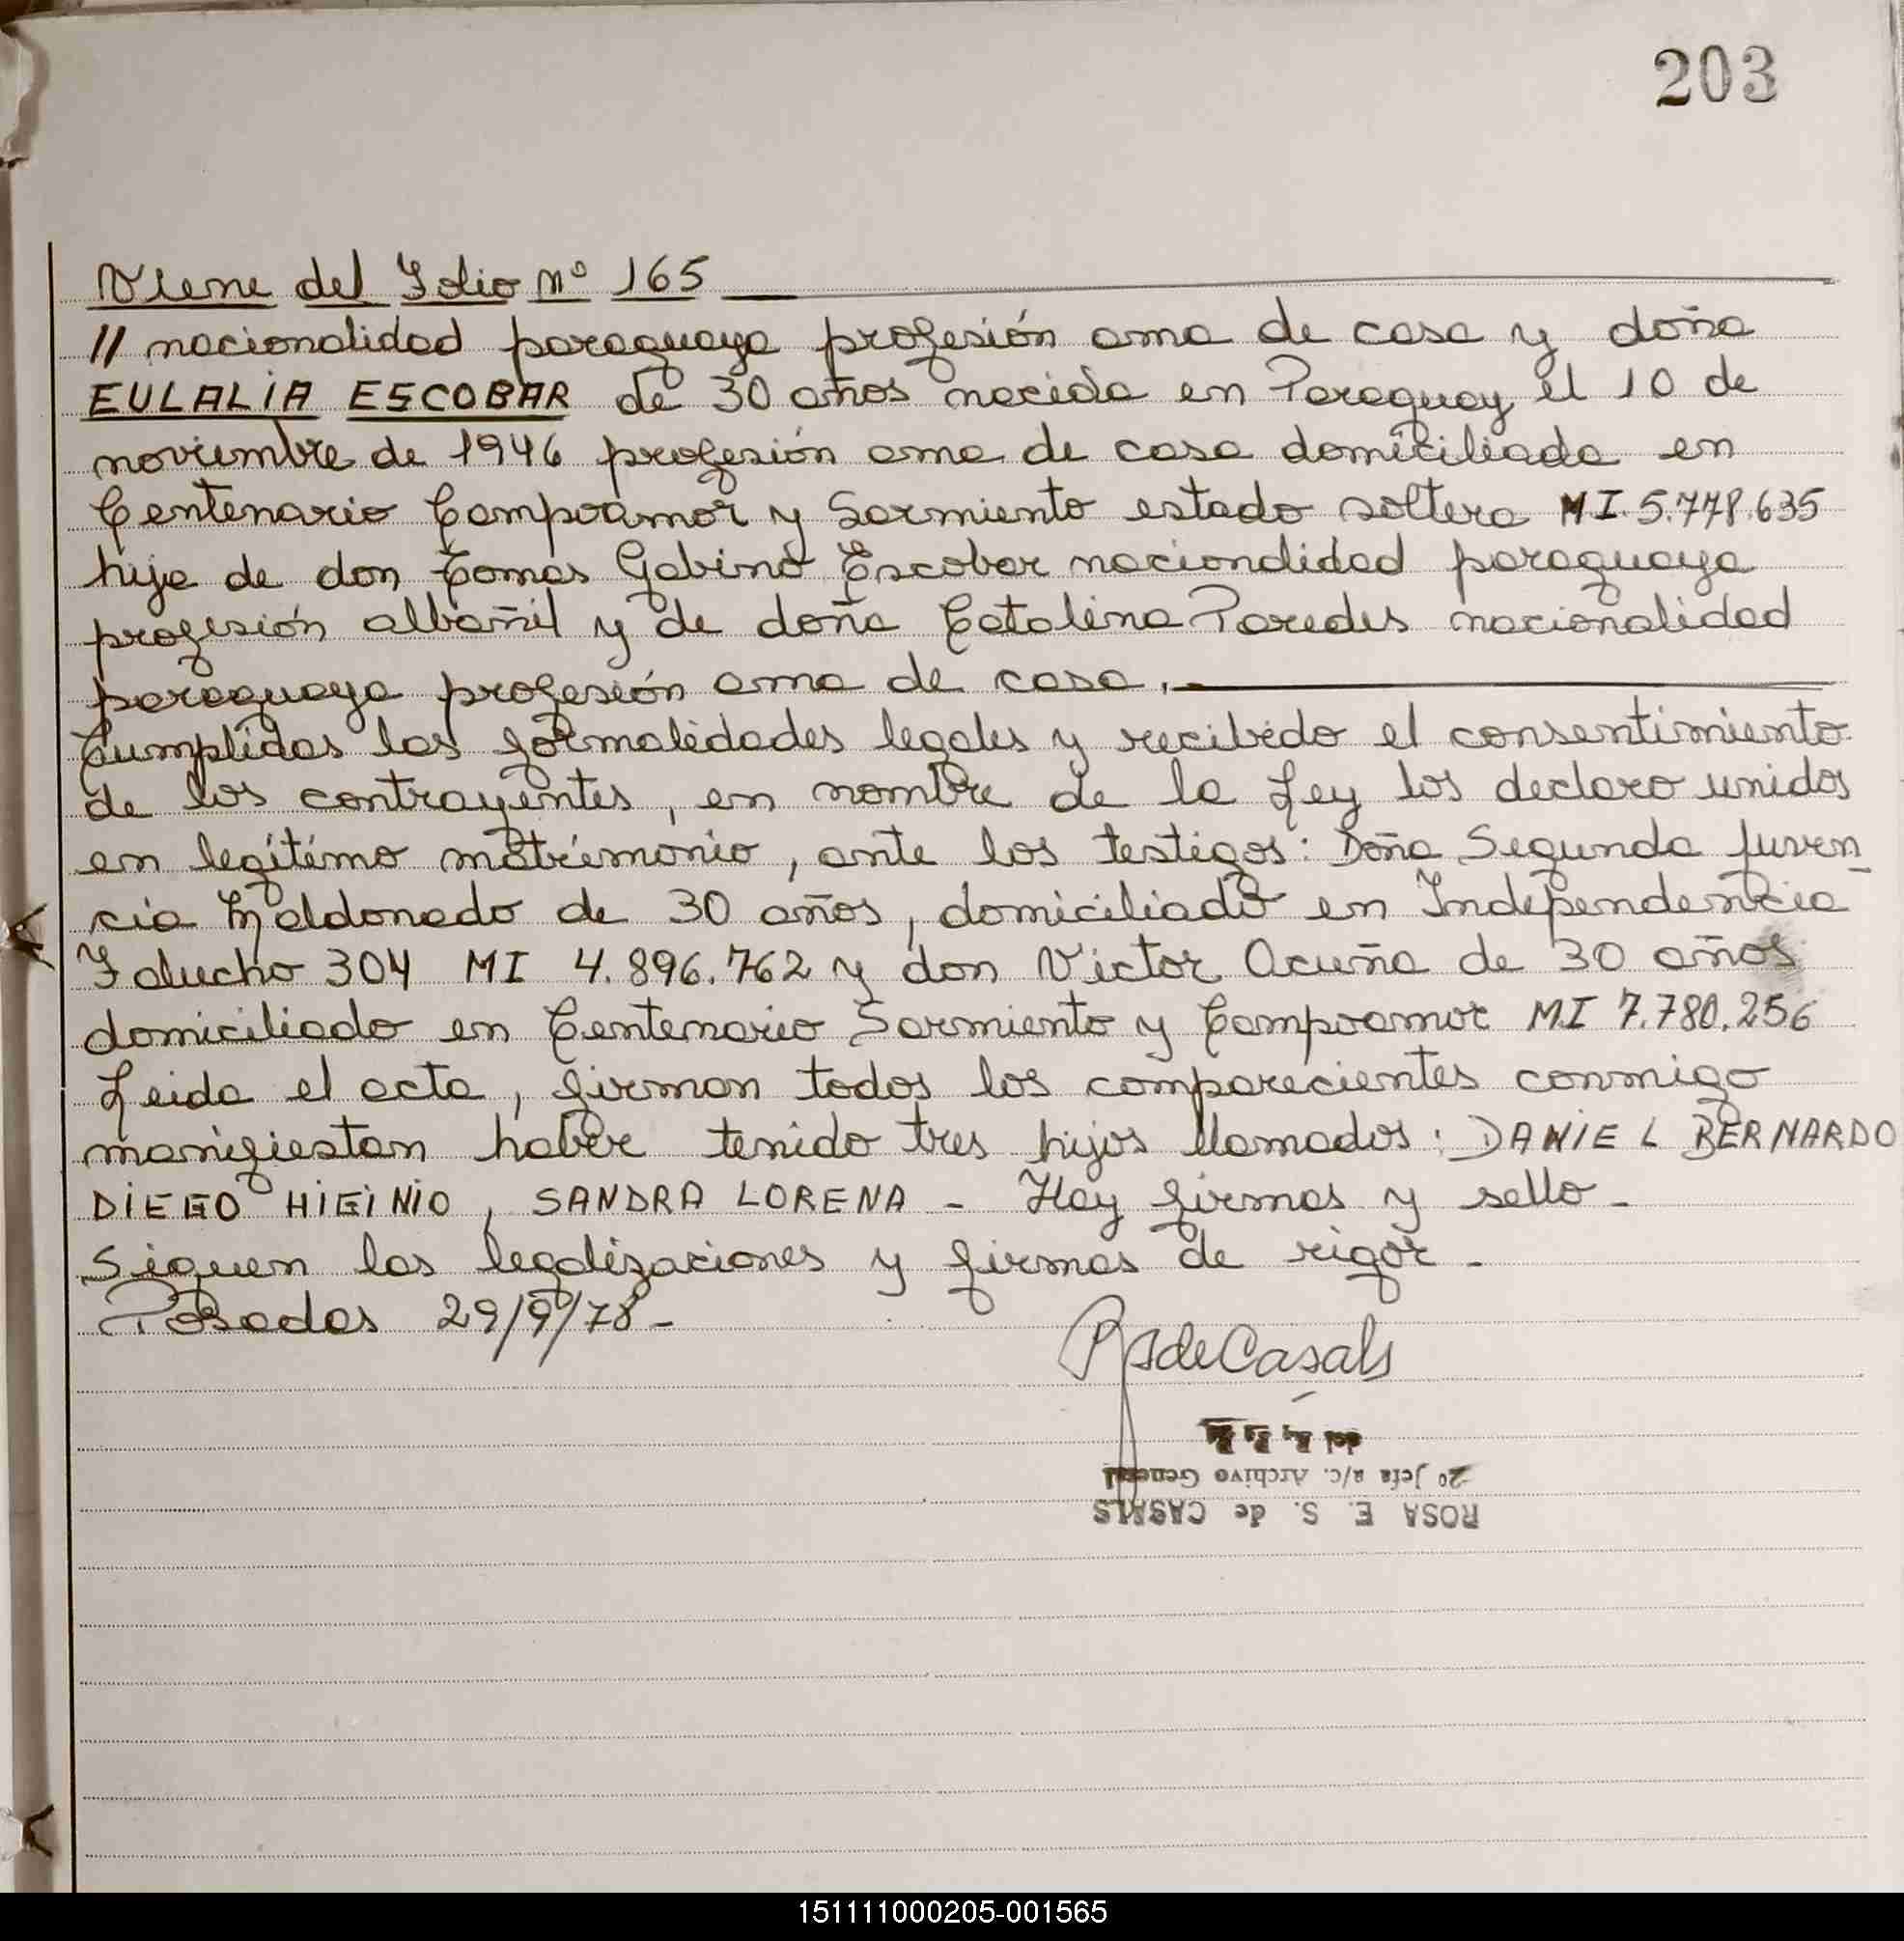 203
Viene del Folio nº 165
// nacionalidad paraguaya profesión ama de casa y doña
EULALIA ESCOBAR de 30 años nacida en Paraguay el 10 de
noviembre de 1946 profesión ama de casa domiciliada en
Centenario Campoamor y Sarmiento estado soltera MI. 5.778.635
hija de don Tomas Gabino Escobar nacionalidad paraguaya
profesión albañil y de doña Catalina Paredes nacionalidad
paraguaya profesión ama de casa.
Cumplidas las formalidades legales y recibido el consentimiento
de los contrayentes, en nombre de la Ley los declaro unidos
en legítimo matrimonio, ante los testigos: Doña Segunda Juven-
cia Maldonado de 30 años, domiciliada en Independencia
Falucho 304 MI 4.896.762 y don Victor Acuña de 30 años
domiciliado en Centenario Sarmiento y Campoamor MI 7.780.256
Leida el acta, firman todos los comparecientes conmigo
manifiestan haber tenido tres hijos llamados: DANIEL BERNARDO
DIEGO HIGINIO, SANDRA LORENA - Hay firmas y sello -
Siguen las legalizaciones y firmas de rigor -
Posadas 29/9/78 -
RSdeCasals
2º Jefa a/c. Archivo General
ROSA E. S. de CASALS
151111000205-001565